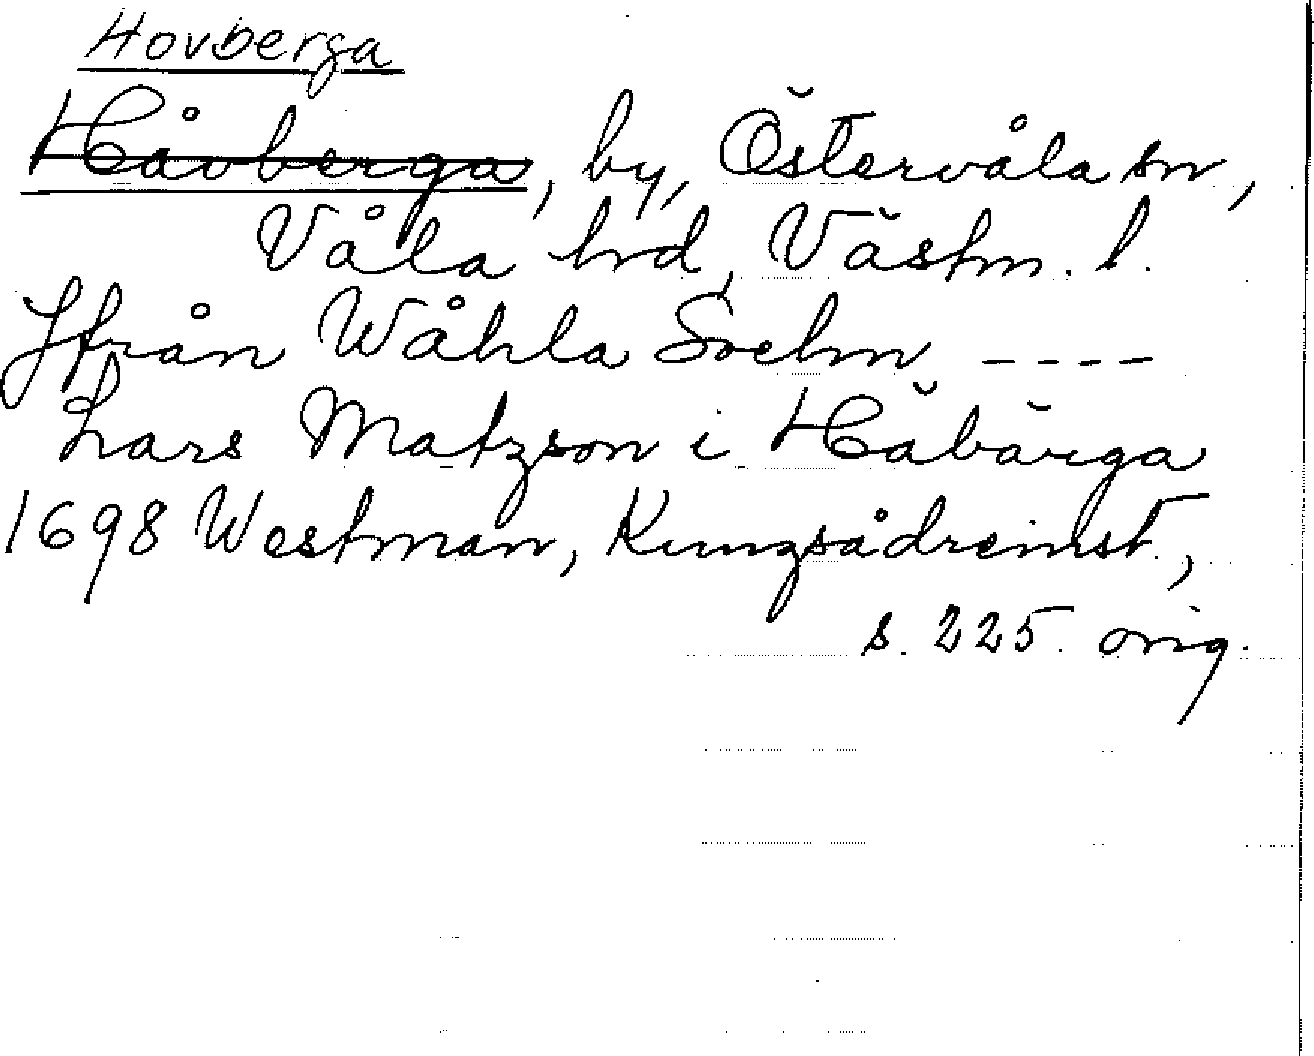 Hovberga
Håvberga, by, Östervåla sn,
Våla hrd, Västm. l.
Ifrån Wåhla Sochn ----
Lars Matzson i Häbärga
1698 Westman, Kungsådreinst.,
s. 225. orig.